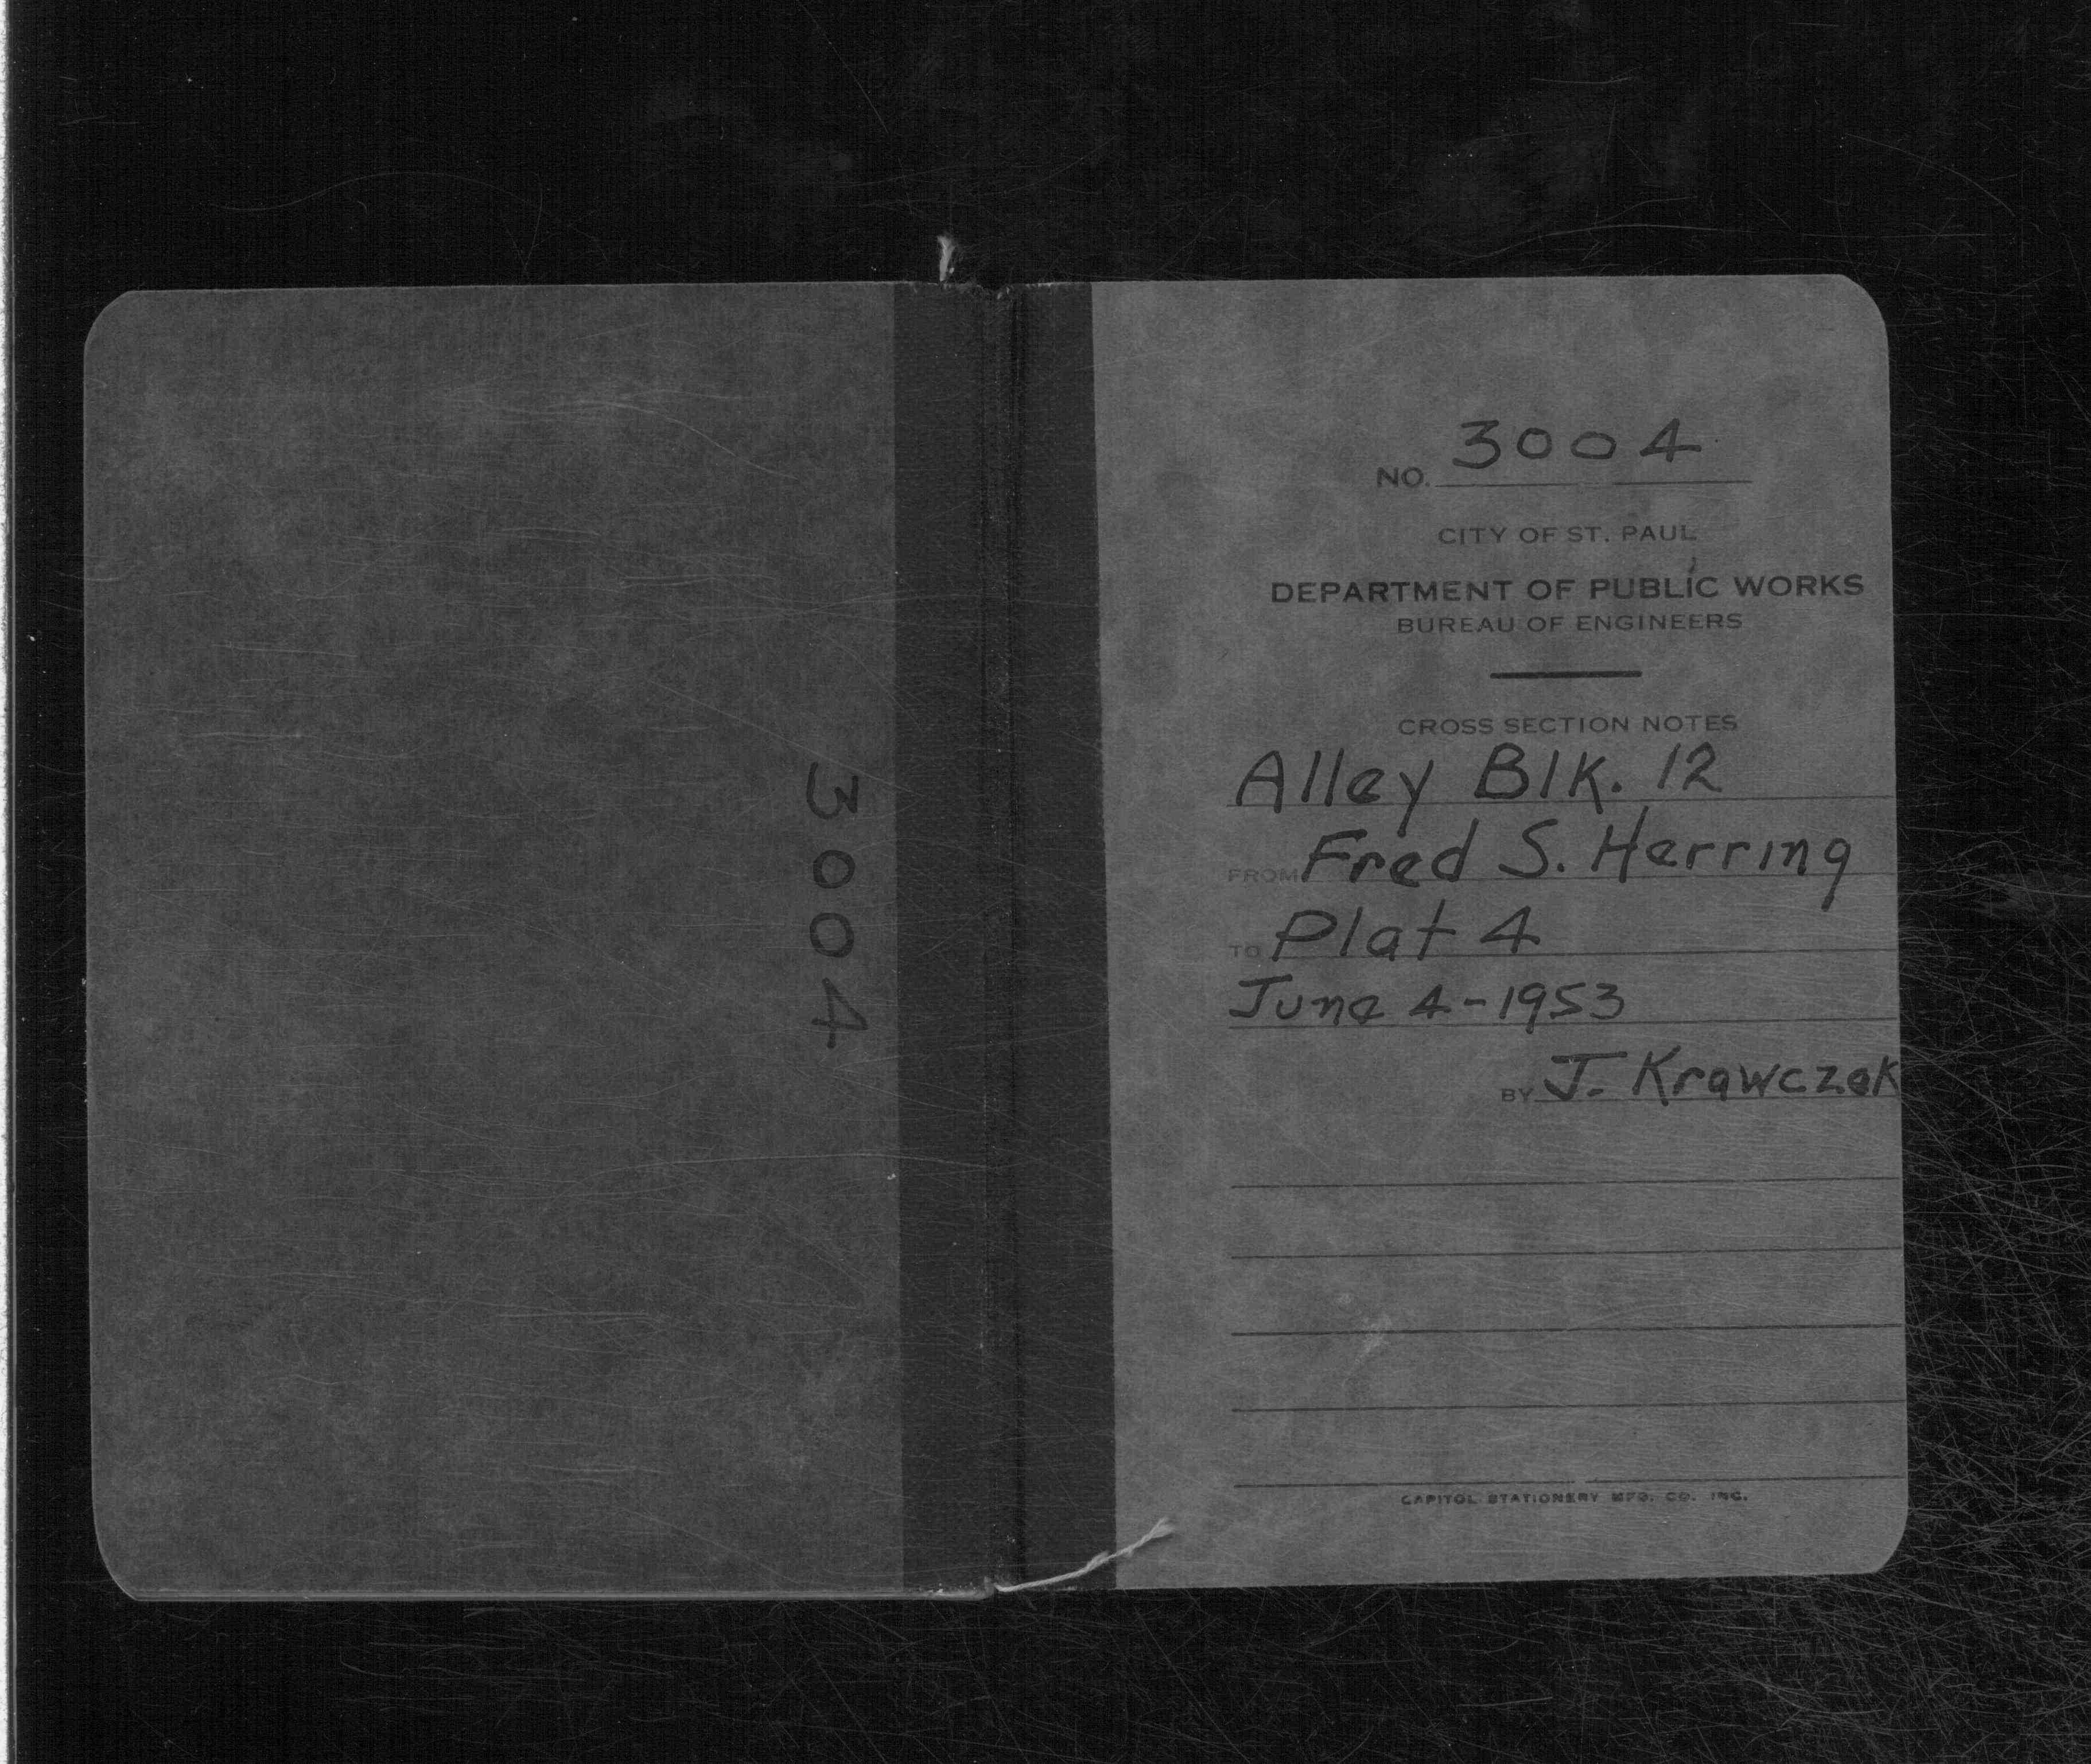 3004
NO. 3004
CITY OF ST. PAUL
DEPARTMENT OF PUBLIC WORKS
BUREAU OF ENGINEERS
CROSS SECTION NOTES
Alley Blk. 12
FROM Fred S. Herring
TO Plat 4
June 4-1953
BY J. Krawczek
CAPITOL STATIONERY MFG. CO. INC.